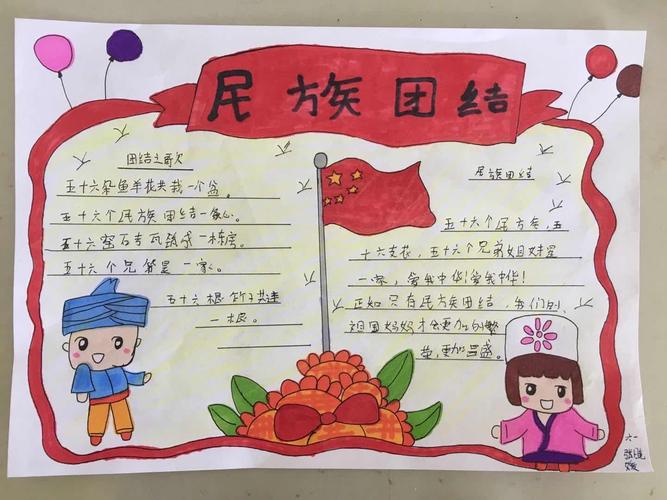 民族团结
团结之歌
五十六朵鲜花共栽一个盆。
五十六个民族团结一条心。
五十六窑石专瓦筑成一栋房。
五十六个兄弟是一家。
五十六根竹子共连
一根。
民族团结
五十六个民族，五
十六支花，五十六个兄弟姐妹是
一家，爱我中华!爱我中华!
正如只有民族团结，我们的
祖国妈妈才会更加的繁
荣，更加昌盛。
六一